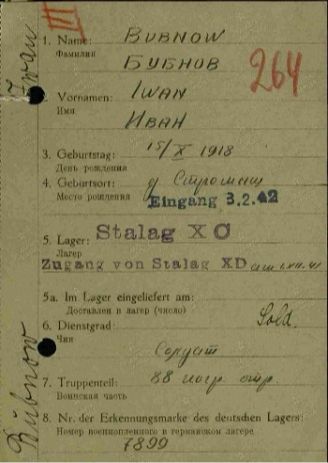 III
Iwan
1. Name: BUBNOW
Фамилия БУБНОВ
264
2. Vornamen: IWAN
Имя ИВАН
3. Geburtstag: 15/X 1918
День рождения
4. Geburtsort: д
Место рождения Eingang 3.2.42
5. Lager: Stalag X C
Лагер
Zugang von Stalag XD am 1.XII.41
5a. Im Lager eingeliefert am:
Доставлен в лагер (число)
6. Dienstgrad: Sold.
Чин Солдат
7. Truppenteil: 88 погр отр.
Воинская часть
8. Nr. der Erkennungsmarke des deutschen Lagers:
Номер военнопленного в германском лагере
7899
Bubnow